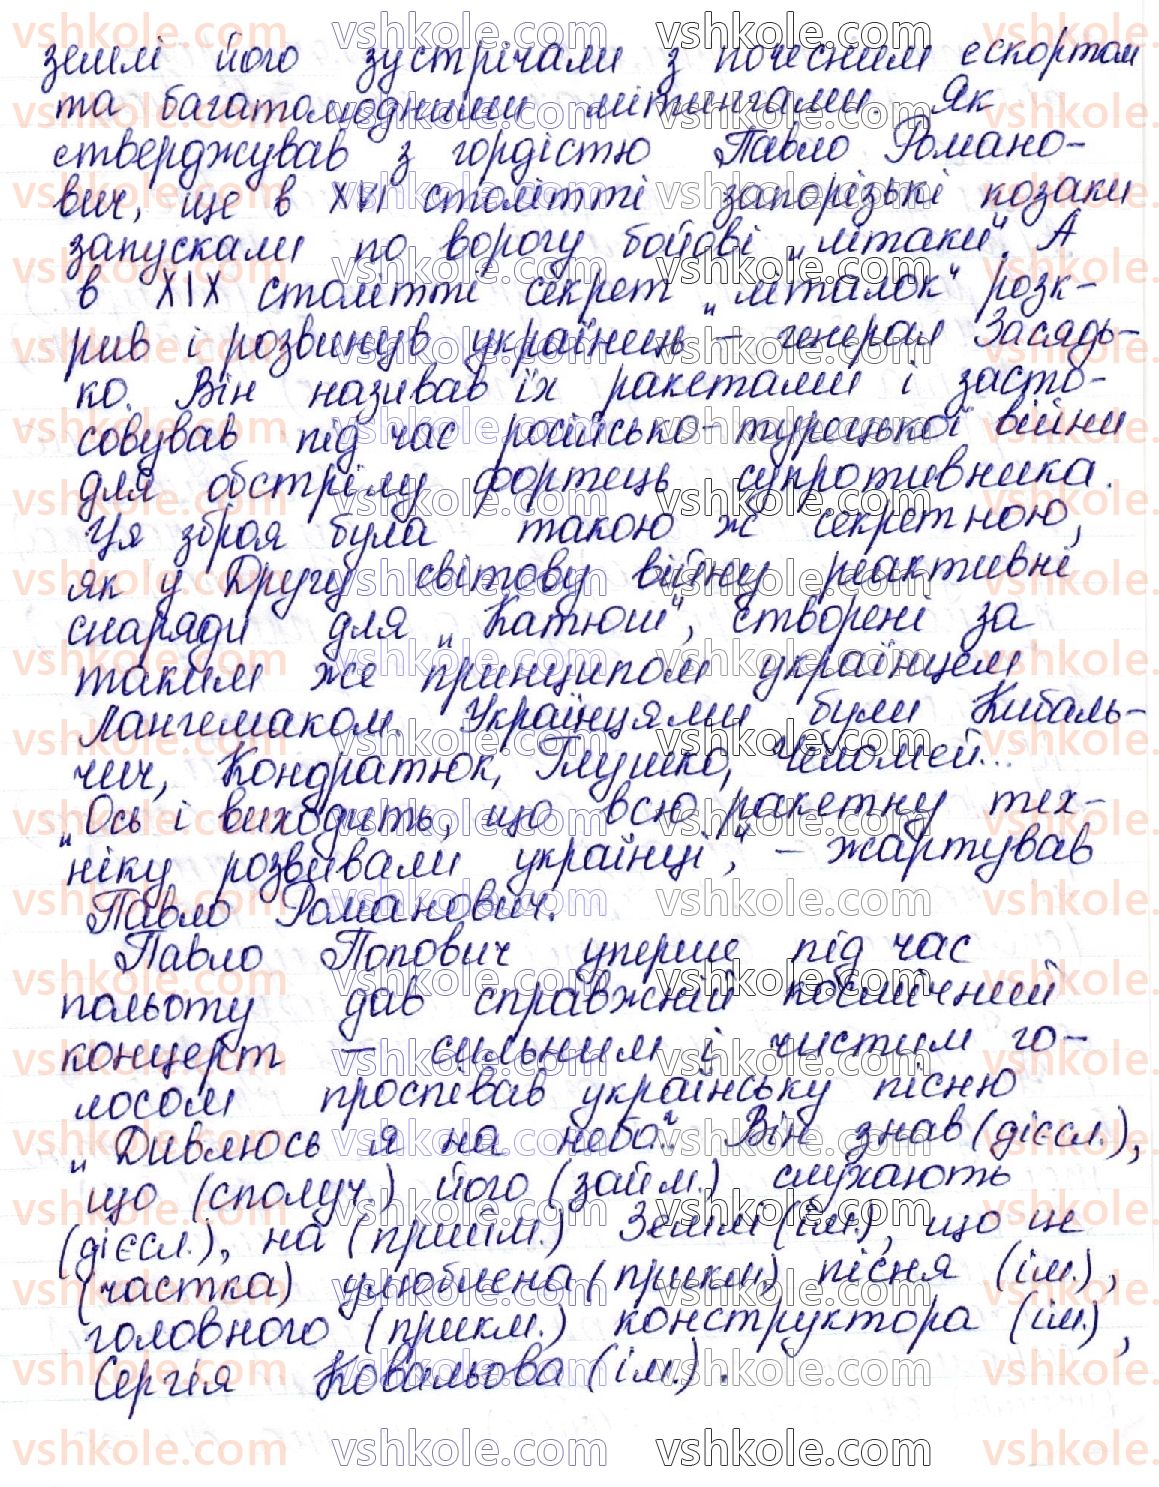 землі його зустрічали з почесним ескортом
та багатолюдними мітингами. Як
стверджував з гордістю Павло Романо-
вич, ще в XVI столітті запорізькі козаки
запускали по ворогу бойові „літаки”. А
в XIX столітті секрет „літалок” розк-
рив і розвинув українець – генерал Засядь-
ко. Він називав їх ракетами і засто-
совував під час російсько-турецької війни
для обстрілу фортець супротивника.
Ця зброя була такою ж секретною,
як у Другу світову війну реактивні
снаряди для „Катюш”, створені за
таким же принципом українцем
Лангемаком. Українцями були Кибаль-
чич, Кондратюк, Глушко, Челомей...
„Ось і виходить, що всю ракетну тех-
ніку розвивали українці”, – жартував
Павло Романович.
Павло Попович уперше під час
польоту дав справжній космічний
концерт – сильним і чистим го-
лосом проспівав українську пісню
„Дивлюсь я на небо”. Він знав (дієсл.),
що (сполуч.) його (займ.) слухають
(дієсл.), на (прийм.) Землі (ім.), що це
(частка) улюблена (прикм.) пісня (ім.),
головного (прикм.) конструктора (ім.),
Сергія Ковальова (ім.).
vshkole.com